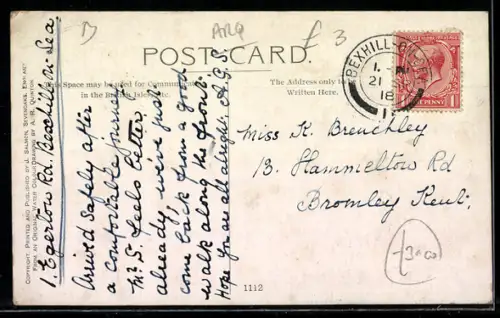 D
ARQ
£3
POST CARD.
This Space may be used for Communication
in the British Isles
The Address only to be
Written Here.
BEXHILL-ON-SEA
21
18
ONE PENNY
1 Egerton Rd. Bexhill on Sea
Arrived safely after
a comfortable journey
Mr S. feels better
already, we've just
come back from a good
walk along the front.
Hope you are all alright. A.G.S.
Miss K. Brenchley
13. Hammelton Rd
Bromley Kent.
1112
COPYRIGHT, PRINTED AND PUBLISHED BY J. SALMON, SEVENOAKS, ENGLAND
FROM AN ORIGINAL WATER COLOUR DRAWING BY A. R. QUINTON